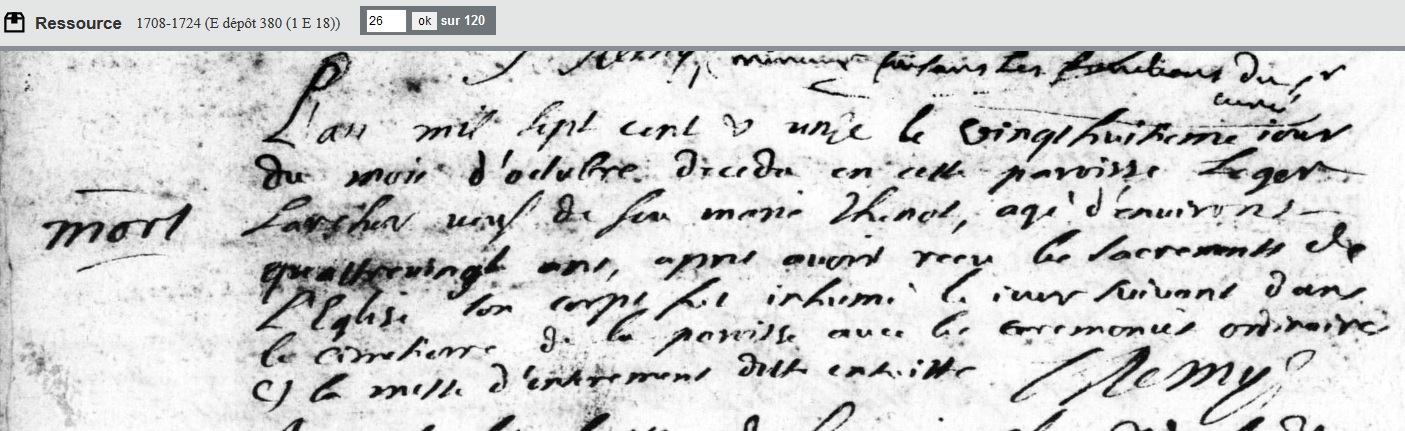 Ressource 1708-1724 (E dépôt 380 (1 E 18)) 26 ok sur 120
Remy, faisant les fonctions du sr
curé
L'an mil sept cent & unze le vingt huitieme iour
du mois d'octobre deceda en cette paroisse Leger
Larcher veuf de feu marie Thenot, agé d'environt
mort
quattrevingt ans, apres avoir receu les sacrements de
L'Eglise son corps fut inhumé le iour suivant dans
le cimetierre de la paroisse avec les ceremonies ordinaires
et la messe d'enterrement ditte ensuitte Remy